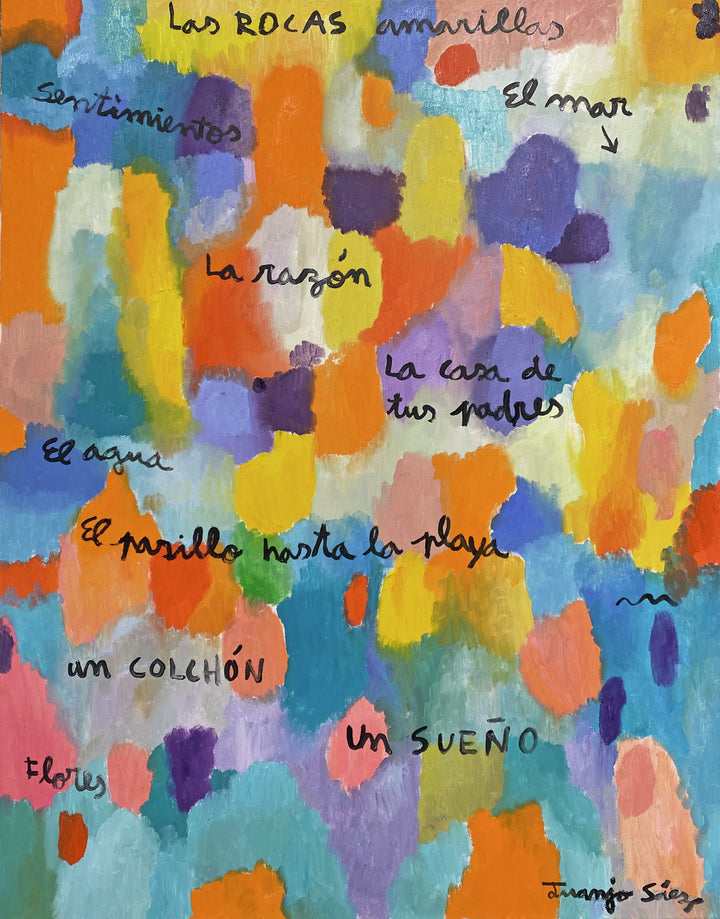 Las ROCAS amarillas
Sentimientos
El mar
La razón
La casa de
tus padres
El agua
El pasillo hasta la playa
un COLCHÓN
Un SUEÑO
Flores
Juanjo Sáez